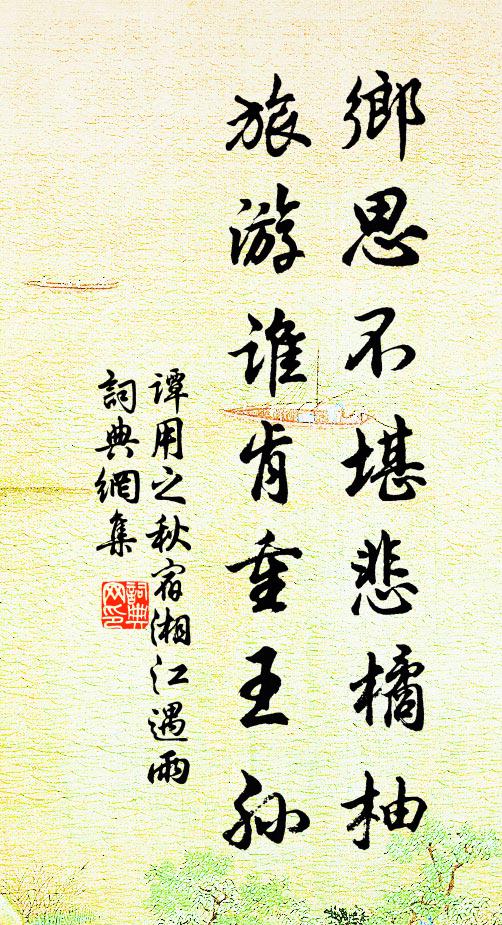 鄉思不堪悲橘柚
旅游誰肯重王孙
谭用之秋宿湘江遇雨
詞典網集
詞典
网印